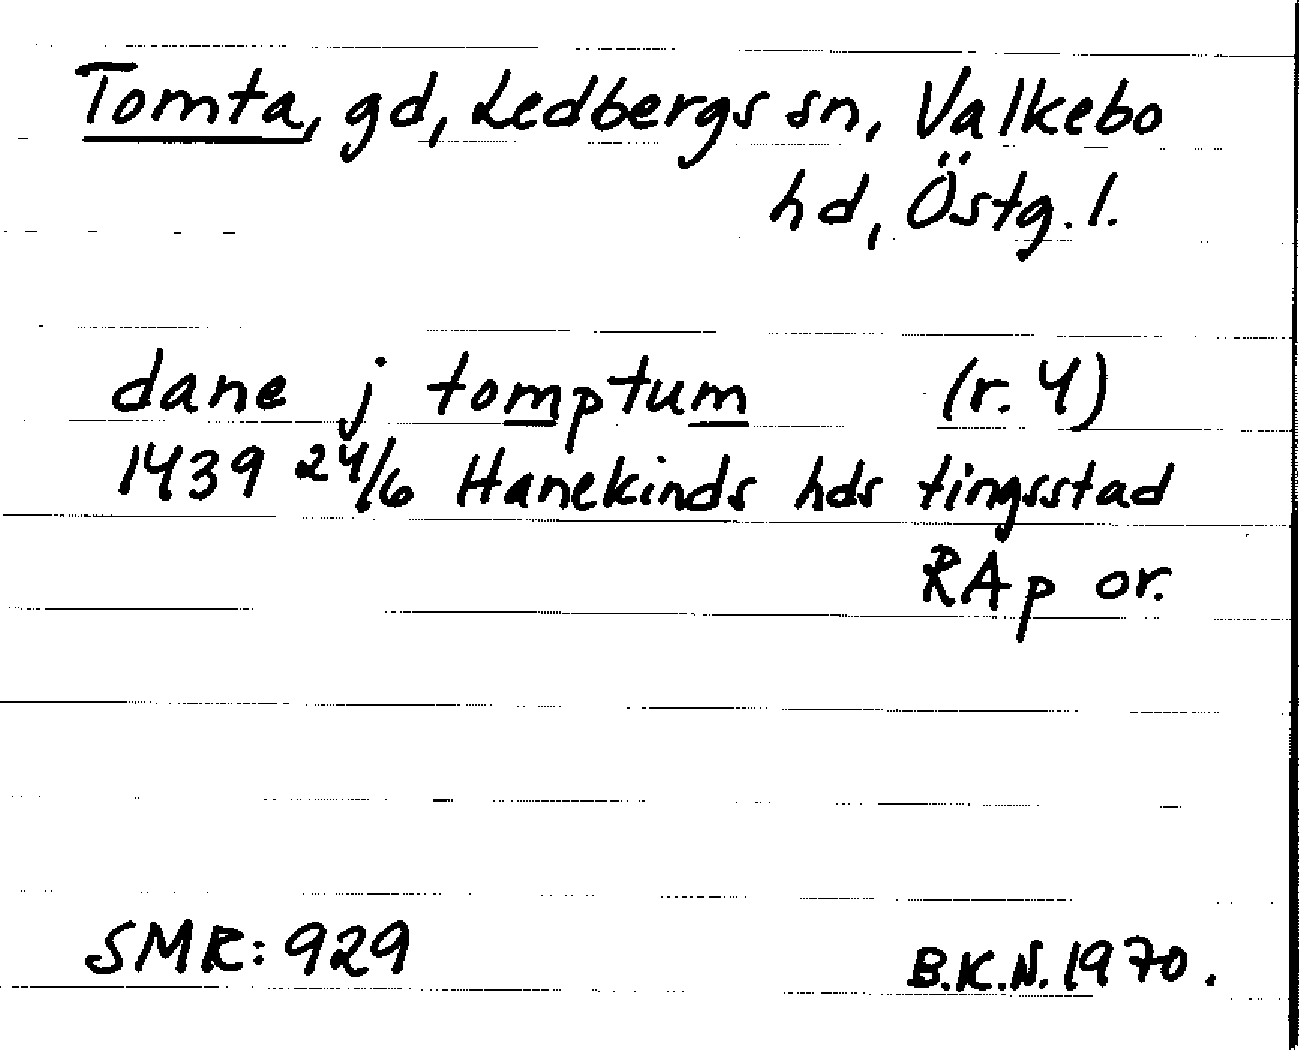 Tomta, gd, Ledbergs sn, Valkebo
hd, Östg. l.
dane j tomptum (r. 4)
1439 24/6 Hanekinds hds tingsstad
RAp or.
SMR: 929
B.K.N. 1970.